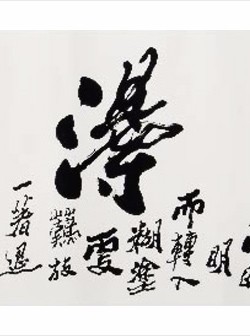 得
明
而轉入
糊塗
更
難放
一著退